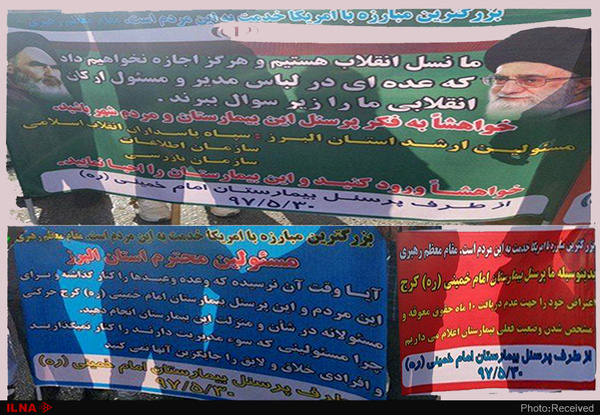 بزرگترین مبارزه با آمریکا خدمت به این مردم است. مقام معظم رهبری
(۱)
ما نسل انقلاب هستیم و هرگز اجازه نخواهیم داد
که عده ای در لباس مدیر و مسئول ارکان
انقلابی ما را زیر سوال ببرند .
خواهشاً به فکر پرسنل این بیمارستان و مردم شهر باشید.
مسئولین ارشد استان البرز : سپاه پاسداران انقلاب اسلامی
سازمان اطلاعات
سازمان بازرسی
خواهشاً ورود کنید و این بیمارستان را احیا نمایید.
از طرف پرسنل بیمارستان امام خمینی (ره)
۹۷/۵/۳۰
بزرگترین مبارزه با آمریکا خدمت به این مردم است. مقام معظم رهبری
مسئولین محترم استان البرز
آیا وقت آن نرسیده که وعده وعیدها را کنار گذاشته و برای
این مردم و این پرسنل بیمارستان امام خمینی (ره) کرج حرکتی
مسئولانه در شان و منزلت این بیمارستان انجام دهید.
چرا مسئولینی که سوء مدیریت دارند را کنار نمیگذارید
و افرادی خلاق و لایق را جایگزین آنها نمی کنید
از طرف پرسنل بیمارستان امام خمینی (ره)
۹۷/۵/۳۰
بزرگترین مبارزه با آمریکا خدمت به این مردم است. مقام معظم رهبری
بدینوسیله ما پرسنل بیمارستان امام خمینی (ره) کرج
اعتراض خود را جهت عدم دریافت ۱۰ ماه حقوق معوقه و
مشخص شدن وضعیت فعلی بیمارستان اعلام می داریم
از طرف پرسنل بیمارستان امام خمینی (ره)
۹۷/۵/۳۰
ILNA
Photo:Received